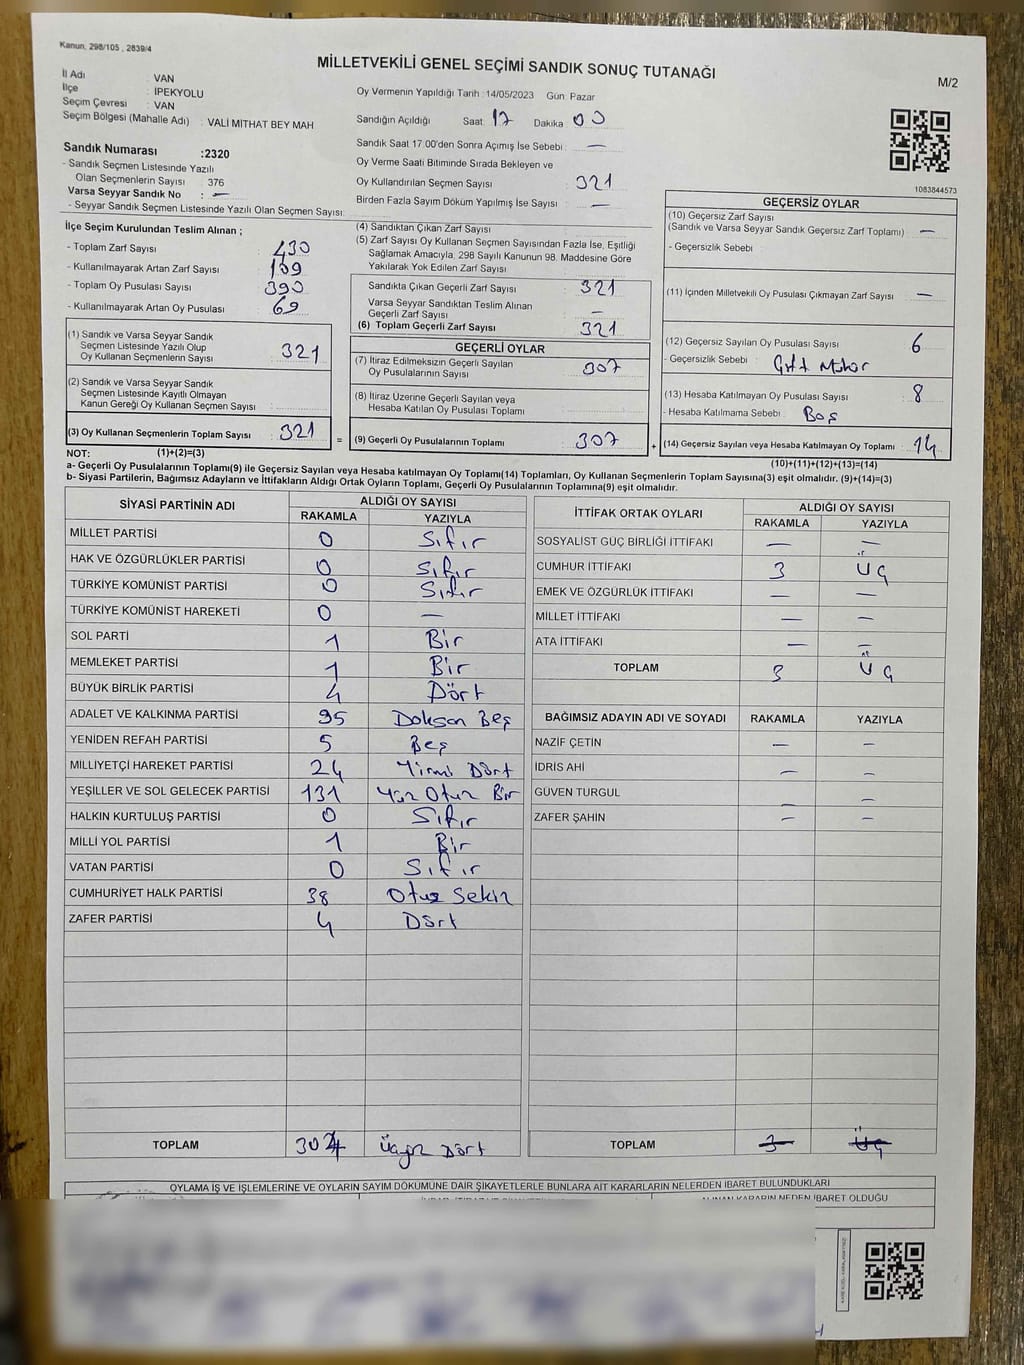 Kanun, 298/105 , 2839/4
MİLLETVEKİLİ GENEL SEÇİMİ SANDIK SONUÇ TUTANAĞI
M/2
İl Adı : VAN
İlçe : İPEKYOLU
Seçim Çevresi : VAN
Seçim Bölgesi (Mahalle Adı) : VALİ MİTHAT BEY MAH
Sandık Numarası :2320
- Sandık Seçmen Listesinde Yazılı
Olan Seçmenlerin Sayısı : 376
Varsa Seyyar Sandık No : —
- Seyyar Sandık Seçmen Listesinde Yazılı Olan Seçmen Sayısı:
Oy Vermenin Yapıldığı Tarih :14/05/2023 Gün: Pazar
Sandığın Açıldığı Saat: 17 Dakika 00
Sandık Saat 17.00'den Sonra Açımış İse Sebebi : —
Oy Verme Saati Bitiminde Sırada Bekleyen ve
Oy Kullandırılan Seçmen Sayısı : 321
Birden Fazla Sayım Döküm Yapılmış İse Sayısı : —
1083844573
İlçe Seçim Kurulundan Teslim Alınan ;
- Toplam Zarf Sayısı : 430
- Kullanılmayarak Artan Zarf Sayısı : 109
- Toplam Oy Pusulası Sayısı : 390
- Kullanılmayarak Artan Oy Pusulası : 69
(1) Sandık ve Varsa Seyyar Sandık
Seçmen Listesinde Yazılı Olup
Oy Kullanan Seçmenlerin Sayısı : 321
(2) Sandık ve Varsa Seyyar Sandık
Seçmen Listesinde Kayıtlı Olmayan
Kanun Gereği Oy Kullanan Seçmen Sayısı :
(3) Oy Kullanan Seçmenlerin Toplam Sayısı : 321
(1)+(2)=(3)
(4) Sandıktan Çıkan Zarf Sayısı :
(5) Zarf Sayısı Oy Kullanan Seçmen Sayısından Fazla İse, Eşitliği
Sağlamak Amacıyla, 298 Sayılı Kanunun 98. Maddesine Göre
Yakılarak Yok Edilen Zarf Sayısı :
Sandıkta Çıkan Geçerli Zarf Sayısı : 321
Varsa Seyyar Sandıktan Teslim Alınan
Geçerli Zarf Sayısı : —
(6) Toplam Geçerli Zarf Sayısı : 321
GEÇERLİ OYLAR
(7) İtiraz Edilmeksizin Geçerli Sayılan
Oy Pusulalarının Sayısı : 307
(8) İtiraz Üzerine Geçerli Sayılan veya
Hesaba Katılan Oy Pusulası Toplamı :
= (9) Geçerli Oy Pusulalarının Toplamı : 307
GEÇERSİZ OYLAR
(10) Geçersiz Zarf Sayısı
(Sandık ve Varsa Seyyar Sandık Geçersiz Zarf Toplamı) : —
- Geçersizlik Sebebi :
(11) İçinden Milletvekili Oy Pusulası Çıkmayan Zarf Sayısı : —
(12) Geçersiz Sayılan Oy Pusulası Sayısı : 6
- Geçersizlik Sebebi : Çift Mühür
(13) Hesaba Katılmayan Oy Pusulası Sayısı : 8
- Hesaba Katılmama Sebebi : Boş
+ (14) Geçersiz Sayılan veya Hesaba Katılmayan Oy Toplamı : 14
(10)+(11)+(12)+(13)=(14)
NOT:
a- Geçerli Oy Pusulalarının Toplamı(9) ile Geçersiz Sayılan veya Hesaba katılmayan Oy Toplamı(14) Toplamları, Oy Kullanan Seçmenlerin Toplam Sayısına(3) eşit olmalıdır. (9)+(14)=(3)
b- Siyasi Partilerin, Bağımsız Adayların ve İttifakların Aldığı Ortak Oyların Toplamı, Geçerli Oy Pusulalarının Toplamına(9) eşit olmalıdır.
SİYASİ PARTİNİN ADI ALDIĞI OY SAYISI
RAKAMLA YAZIYLA
MİLLET PARTİSİ 0 Sıfır
HAK VE ÖZGÜRLÜKLER PARTİSİ 0 Sıfır
TÜRKİYE KOMÜNİST PARTİSİ 0 Sıfır
TÜRKİYE KOMÜNİST HAREKETİ 0 —
SOL PARTİ 1 Bir
MEMLEKET PARTİSİ 1 Bir
BÜYÜK BİRLİK PARTİSİ 4 Dört
ADALET VE KALKINMA PARTİSİ 95 Doksan Beş
YENİDEN REFAH PARTİSİ 5 Beş
MİLLİYETÇİ HAREKET PARTİSİ 24 Yirmi Dört
YEŞİLLER VE SOL GELECEK PARTİSİ 131 Yüz Otuz Bir
HALKIN KURTULUŞ PARTİSİ 0 Sıfır
MİLLİ YOL PARTİSİ 1 Bir
VATAN PARTİSİ 0 Sıfır
CUMHURİYET HALK PARTİSİ 38 Otuz Sekiz
ZAFER PARTİSİ 4 Dört
TOPLAM 304 Üçyüz Dört
İTTİFAK ORTAK OYLARI ALDIĞI OY SAYISI
RAKAMLA YAZIYLA
SOSYALİST GÜÇ BİRLİĞİ İTTİFAKI — —
CUMHUR İTTİFAKI 3 Üç
EMEK VE ÖZGÜRLÜK İTTİFAKI — —
MİLLET İTTİFAKI — —
ATA İTTİFAKI — —
TOPLAM 3 Üç
BAĞIMSIZ ADAYIN ADI VE SOYADI RAKAMLA YAZIYLA
NAZİF ÇETİN — —
İDRİS AHİ — —
GÜVEN TURGUL — —
ZAFER ŞAHİN — —
TOPLAM 3 Üç
OYLAMA İŞ VE İŞLEMLERİNE VE OYLARIN SAYIM DÖKÜMÜNE DAİR ŞİKAYETLERLE BUNLARA AİT KARARLARIN NELERDEN İBARET BULUNDUKLARI
ALINAN KARARIN NEDEN İBARET OLDUĞU